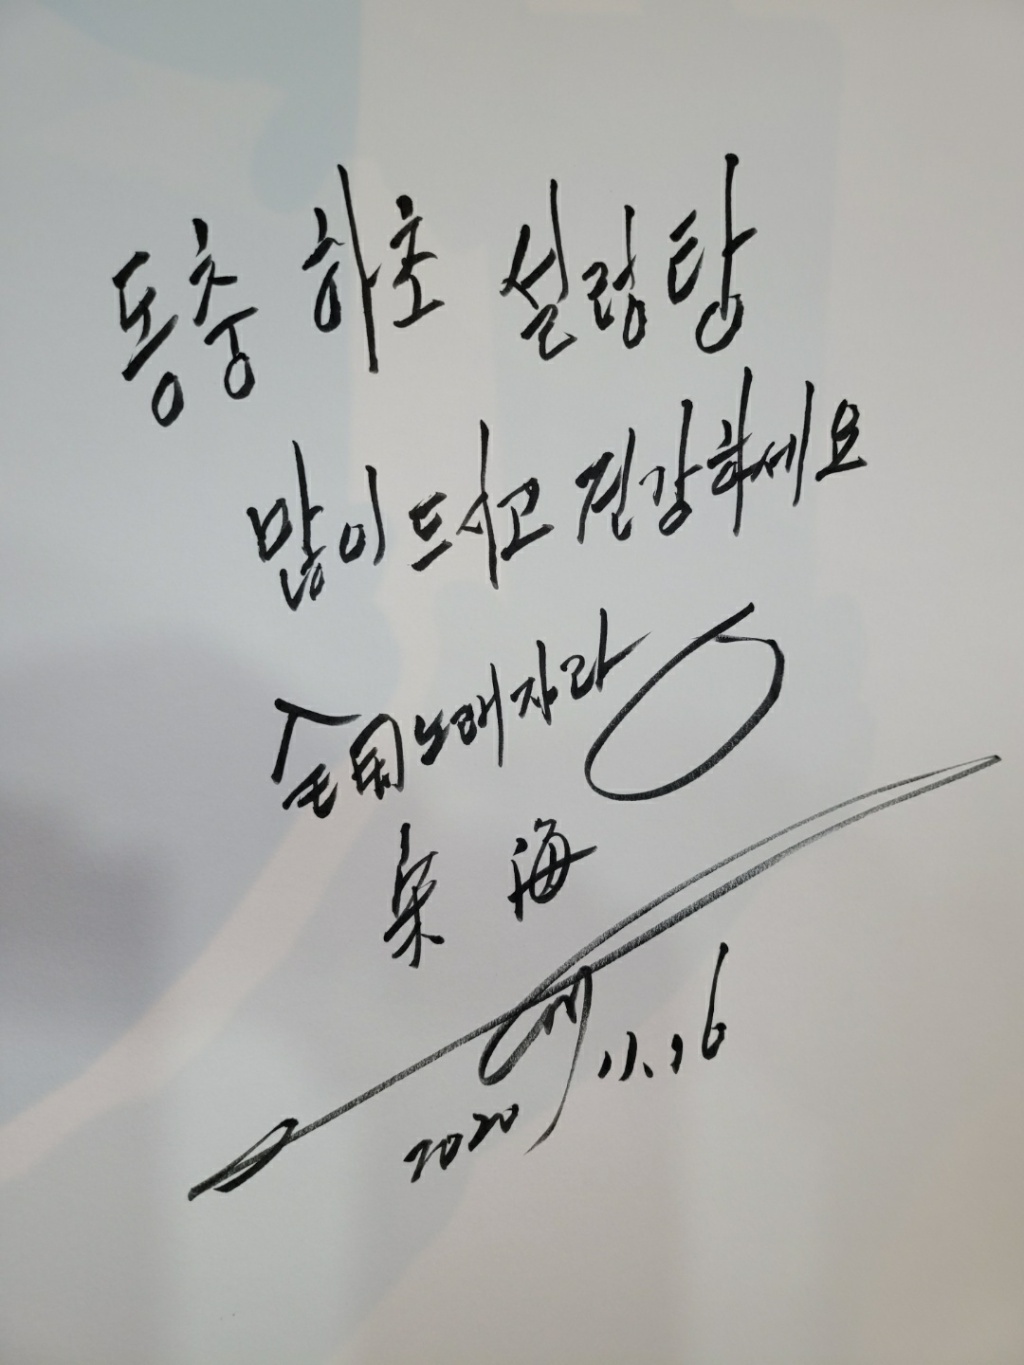 동충 하초 설렁탕
많이 드시고 건강하세요
全国노래자랑
宋 海
2020 11.16